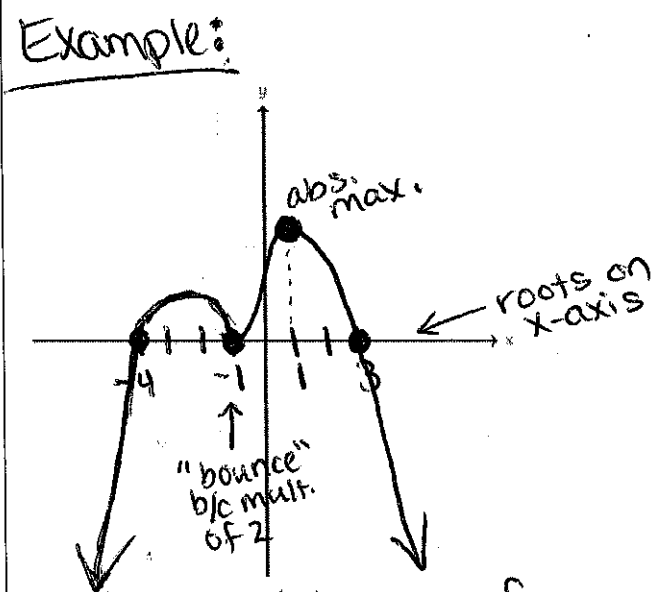 Example:
y
abs.
max.
roots on
x-axis
x
-4
-1
1
3
"bounce"
b/c mult.
of 2